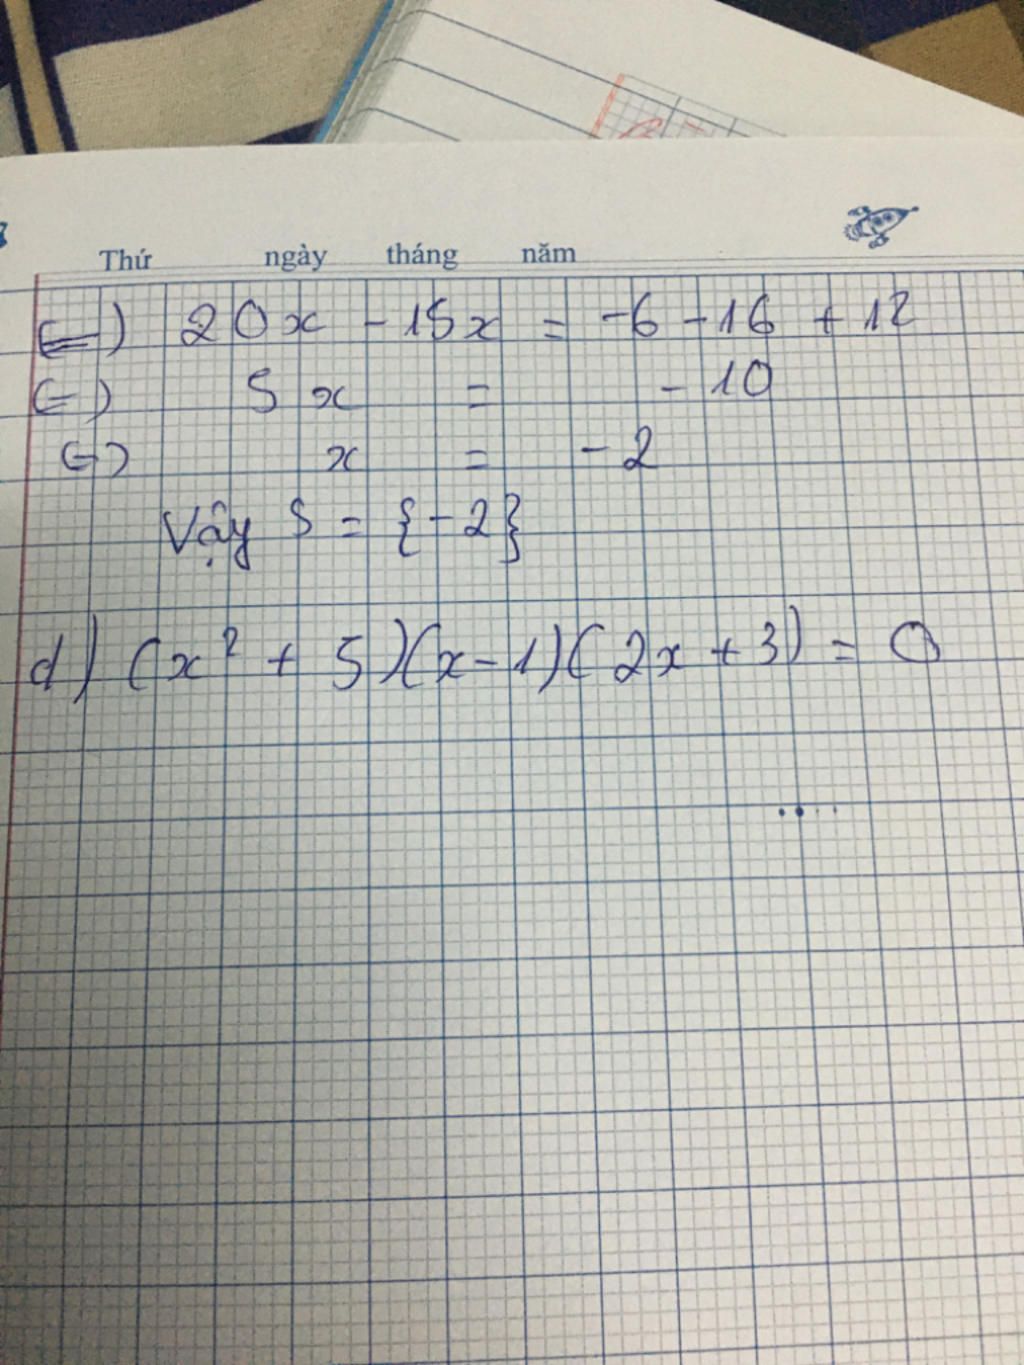 Thứ ngày tháng năm
<=) 20x - 15x = -6 - 16 + 12
(=) 5x = -10
(=) x = -2
Vậy S = {-2}
d) (x² + 5)(x - 1)(2x + 3) = 0